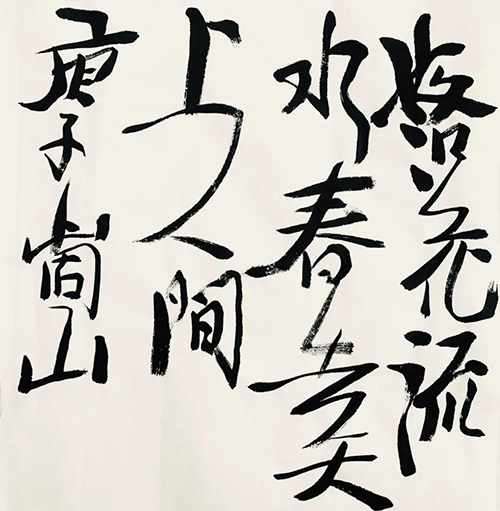 落花流
水春去天
上人間
庚子尚山